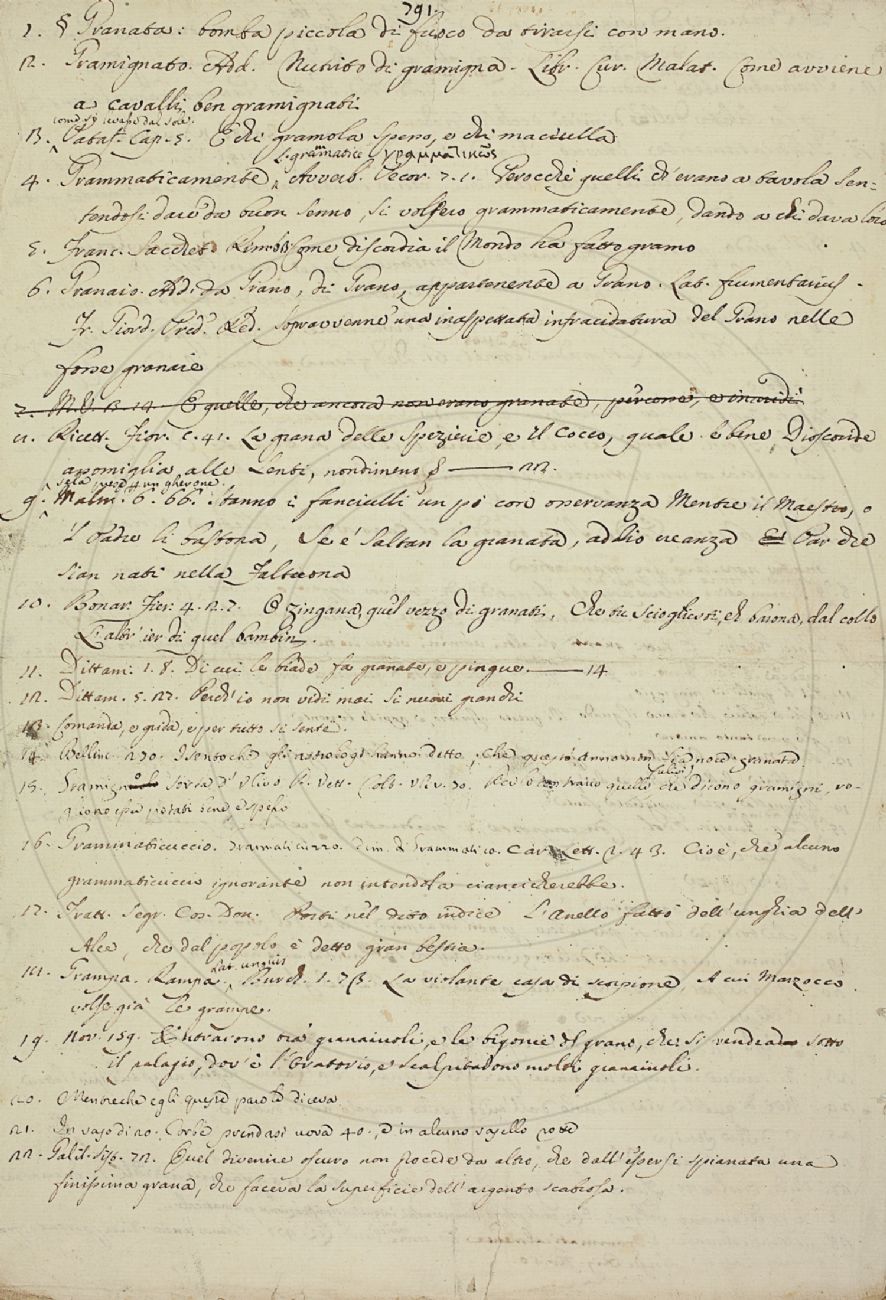 291
1. § Granata: bomba piccola di fuoco da tirarsi con mano.
2. Gramignato. Add. Nutrito di gramigna. Libr. Cur. Malat. Come avviene
a cavalli ben gramignati
3. Pataf. Cap. 5. E chi gramola spero, e chi maciulla
L. grammatice, γραμματικῶς
4. Grammaticamente, Avverb. Pecor. 7. 1. Perocchè quelli ch'erano a tavola sen-
tendosi dare da buon senno, si volsero grammaticamente, dando a chi dava loro
5. Franc. Sacchet. Rim. Come discordia il Mondo ha fatto gramo
6. Granaio. Add. da Grano, di Grano, appartenente a Grano. Lat. frumentarius.
Fr. Giord. Pred. Red. Sopravvenne una inaspettata infracidatura del Grano nelle
fosse granaie
7. M.V. 3. 14. E quelle, che ancora non erano granate, percome, e inaridi
8. Ricett. Fior. C. 41. La grana delle Spezierie, e il Cocco, quale è bene Dioscoride
assomiglia alle Lenti, nondimeno § —— 22.
9. Malm. 6. 66. Stanno i fanciulli un po' con osservanza Mentre il Maestro, o
'l Padre li bastona, Se e' saltan la granata, addio creanza Par che
sian nati nella Falterona
10. Bonar. Fier. 4. 2. 7. O Zingana, quel vezzo di granati, Che tu sciogliesti, eh buona, dal collo
L'altr'ier di quel bambin.
11. Dittam. 1. 8. Di cui le biade fa granate, e pingue —— 14
12. Dittam. 5. 27. Perch'io non vidi mai si nuovi granchi
13. Comanda, e grida, e per tutto si sente.
14. Bellinc. 270. I sento che gli astrologi hanno detto, Che questo anno non fia noce granata
15. Sorta d'Ulivo P. Vett. Colt. Uliv. 30. quelli che dicono gramigni, vo-
gliono esser potati bene, e spesso
16. Grammaticuccio. Grammaticuzzo. Dim. di Grammatico. Car. Lett. 2. 43. Cioè, che alcuno
grammaticuccio ignorante non intendola ciancicherebbe.
17. Tratt. Segr. Cos. Don. Porti nel dito indice L'anello fatto dell'unghia dell'
Alce, che dal popolo è detto gran bestia.
Lat. unguis
18. Grampa. Rampa, Burch. 1. 73. La violante casa di scorpione, A cui Marzocco
volse già le grampe.
19. Nov. 159. Entrarono tra' granaiuoli, e le bigonce del grano, che si vendeva sotto
il palagio, dov'è l'Oratorio, e scalpitarono molti granaiuoli.
20. Mentreche egli queste parole diceva
21. prendasi uova 40., e in alcuno vasello
22. Galil. Sist. 72. Quel divenire oscuro non procede da altro, che dall'essersi spianata una
finissima grana, che faceva la superficie dell'argento scabrosa.